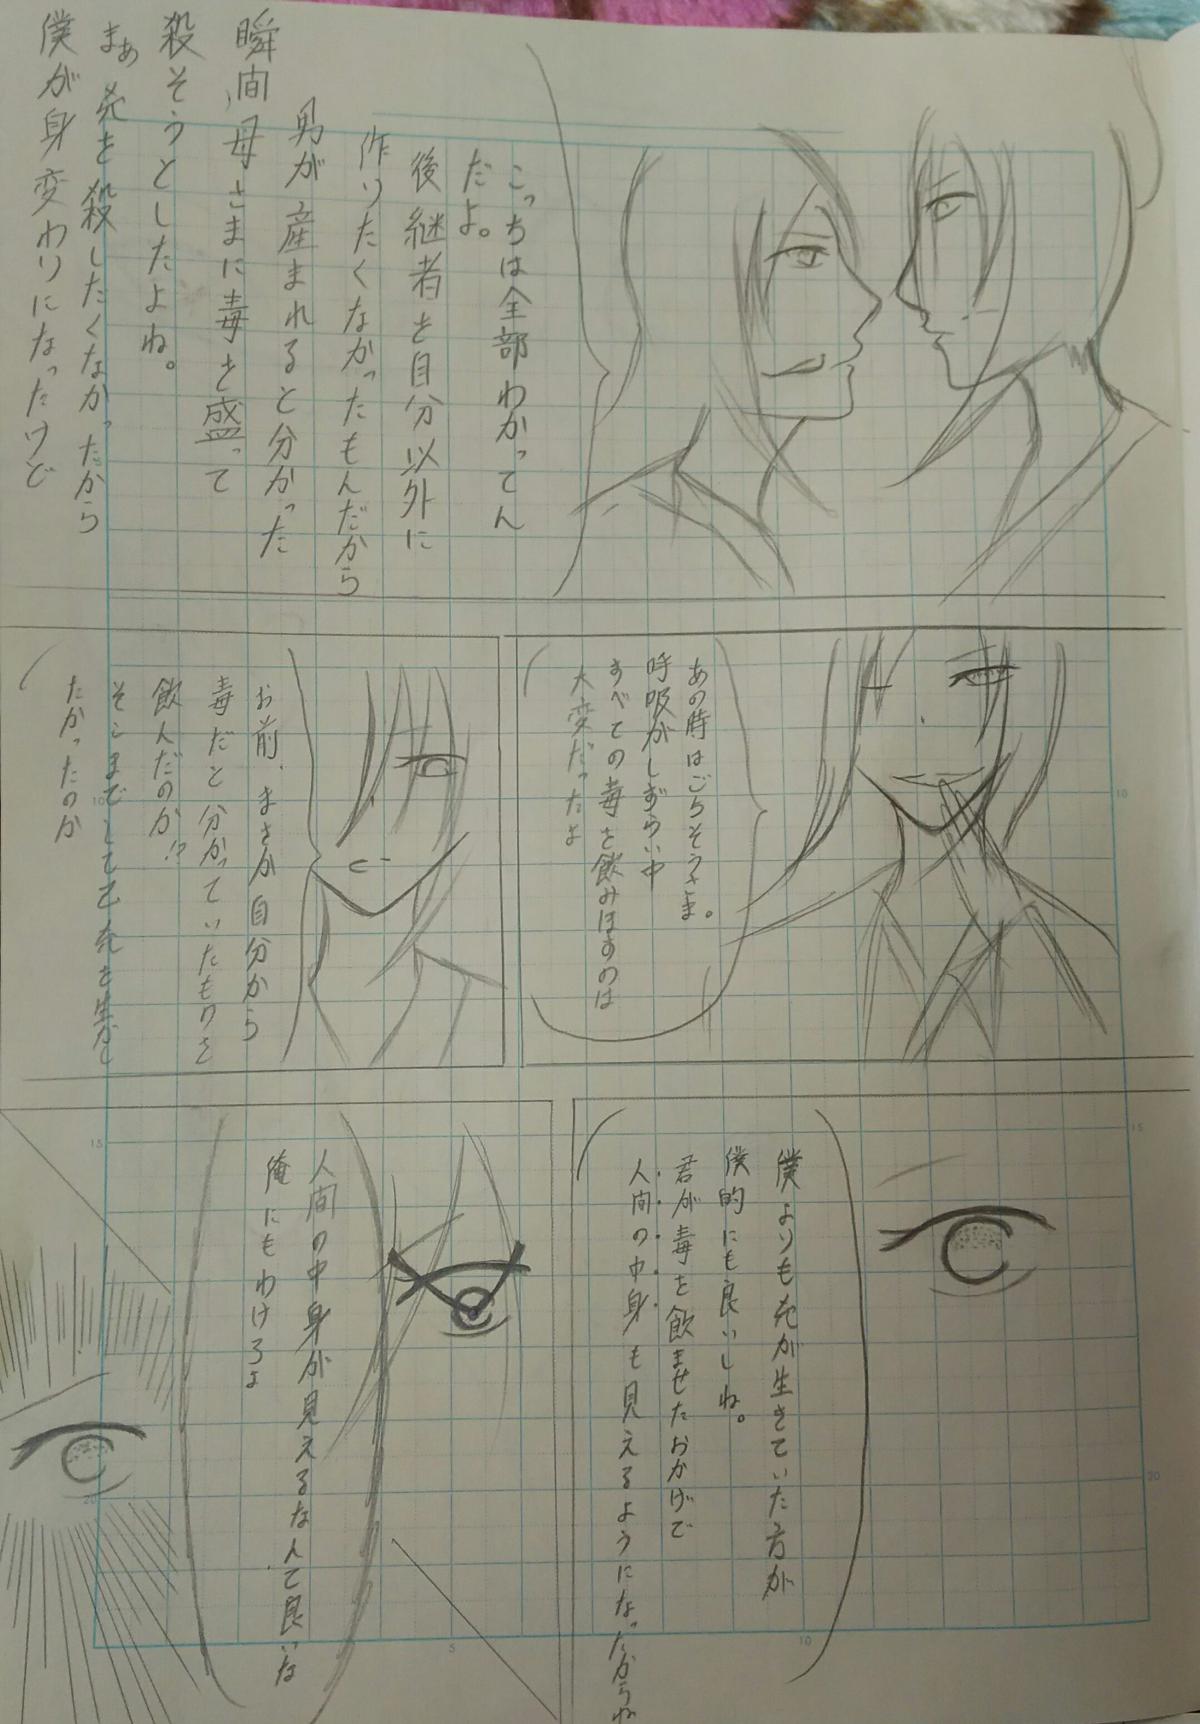 こっちは全部わかってん
だよ。
後継者を自分以外に
作りたくなかったもんだから
男が産まれると分かった
瞬間、母さまに毒を盛って
殺そうとしたよね。
まぁ 兄を殺したくなかったから
僕が身変わりになったけど
あの時はごちそうさま。
呼吸がしずらい中
すべての毒を飲みほすのは
大変だったよ
お前、まさか自分から
毒だと分かっていたものを
飲んだのか!?
そこまでして乙兄を生かし
たかったのか
僕よりも兄が生きていた方が
僕的にも良いしね。
君が毒を飲ませたおかげで
人間の中身も見えるようになったからね
人間の中身が見えるなんて良いな
俺にもわけろよ
10
10
15
15
20
20
5
10